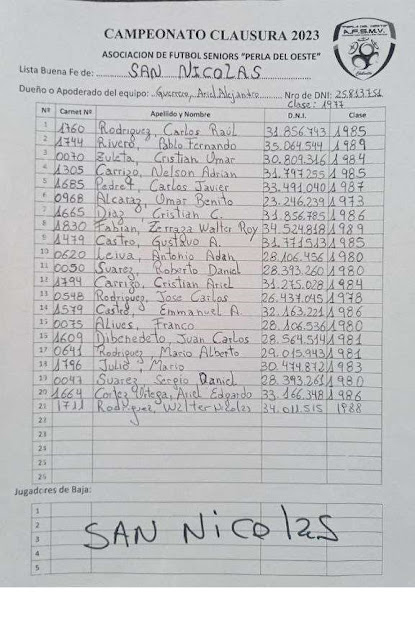 CAMPEONATO CLAUSURA 2023
A.F.S.M.V.
ASOCIACION DE FUTBOL SENIORS "PERLA DEL OESTE"
Lista Buena Fe de: SAN NICOLAS
Dueño o Apoderado del equipo: Guerrero, Ariel Alejandro Nro de DNI: 25.813.751
Clase: 1977
Nº Carnet Nº Apellido y Nombre D.N.I. Clase
1 1760 Rodriguez, Carlos Raúl 31.856.743 1985
2 1744 Rivero, Pablo Fernando 35.064.544 1989
3 0070 Zuleta, Cristian Omar 30.809.316 1984
4 1305 Carrizo, Nelson Adrian 31.797.255 1985
5 1685 Carlos Javier 33.491.040 1987
6 0968 Alcaraz, Omar Benito 23.246.239 1973
7 1665 Diaz, Cristian C. 31.856.785 1986
8 1830 Fabian, Zerraza Walter Roy 34.524.818 1989
9 1479 Castro, Gustavo A. 31.771.513 1985
10 0620 Leiva, Antonio Adan 28.106.456 1980
11 0050 Suarez, Roberto Daniel 28.393.260 1980
12 1794 Carrizo, Cristian Ariel 31.275.028 1984
13 0548 Rodriguez, Jose Carlos 26.437.045 1978
14 1579 Castro, Emmanuel A. 32.163.221 1986
15 0075 Alives, Franco 28.106.536 1980
16 1609 Dibenedeto, Juan Carlos 28.564.514 1981
17 0641 Rodriguez, Mario Alberto 29.015.943 1981
18 1796 Julio, Mario 30.474.872 1983
19 0047 Suarez, Sergio Daniel 28.393.261 1980
20 1664 Cortez Ortega, Ariel Edgardo 33.166.348 1986
21 1711 Rodriguez, Walter Nicolas 34.011.515 1988
22
23
24
25
26
Jugadores de Baja:
1
2
3
4
5
SAN NICOLAS